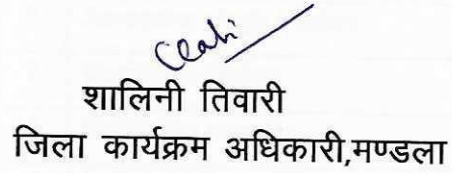 शालिनी तिवारी
जिला कार्यक्रम अधिकारी,मण्डला